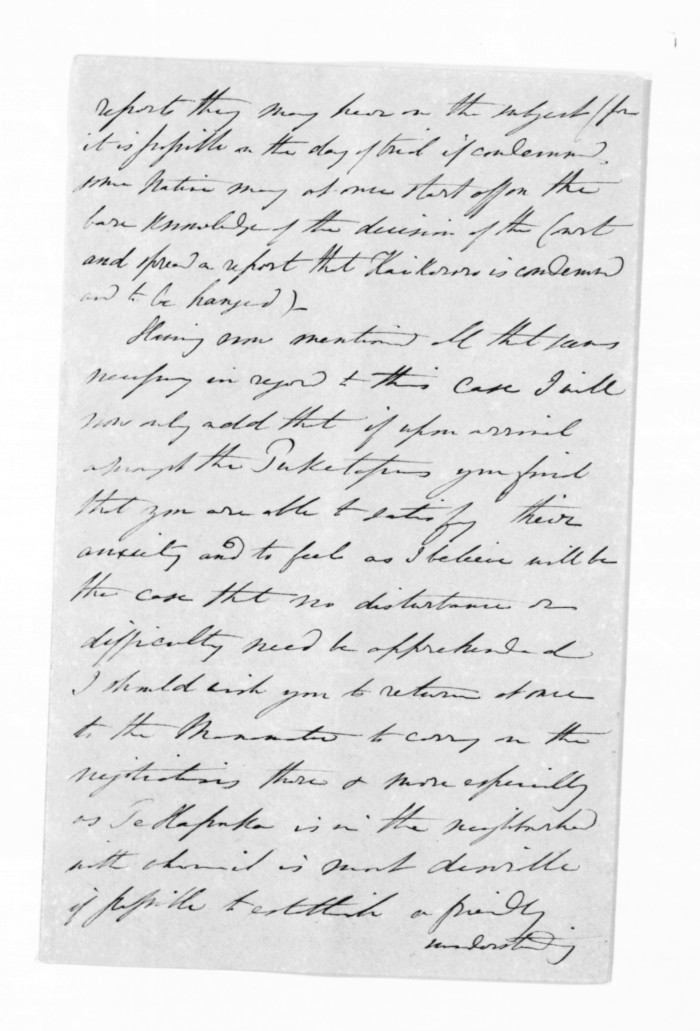 reports they may hear on the subject (for
it is possible on the day of trial if condemned,
some Native may at once start off on the
bare knowledge of the decision of the Court
and spread a report that Kaikororo is condemned
and to be hanged) –
Having now mentioned all that seems
necessary in regard to this case I will
now only add that if upon arrival
amongst the Puketapus you find
that you are able to satisfy their
anxiety and to feel as I believe will be
the case that no disturbance or
difficulty need be apprehended
I should wish you to return at once
to the Manawatu to carry on the
negotiations there & more especially
as Te Hapuku is in the neighborhood
with whom it is most desirable
if possible to establish a friendly
understanding